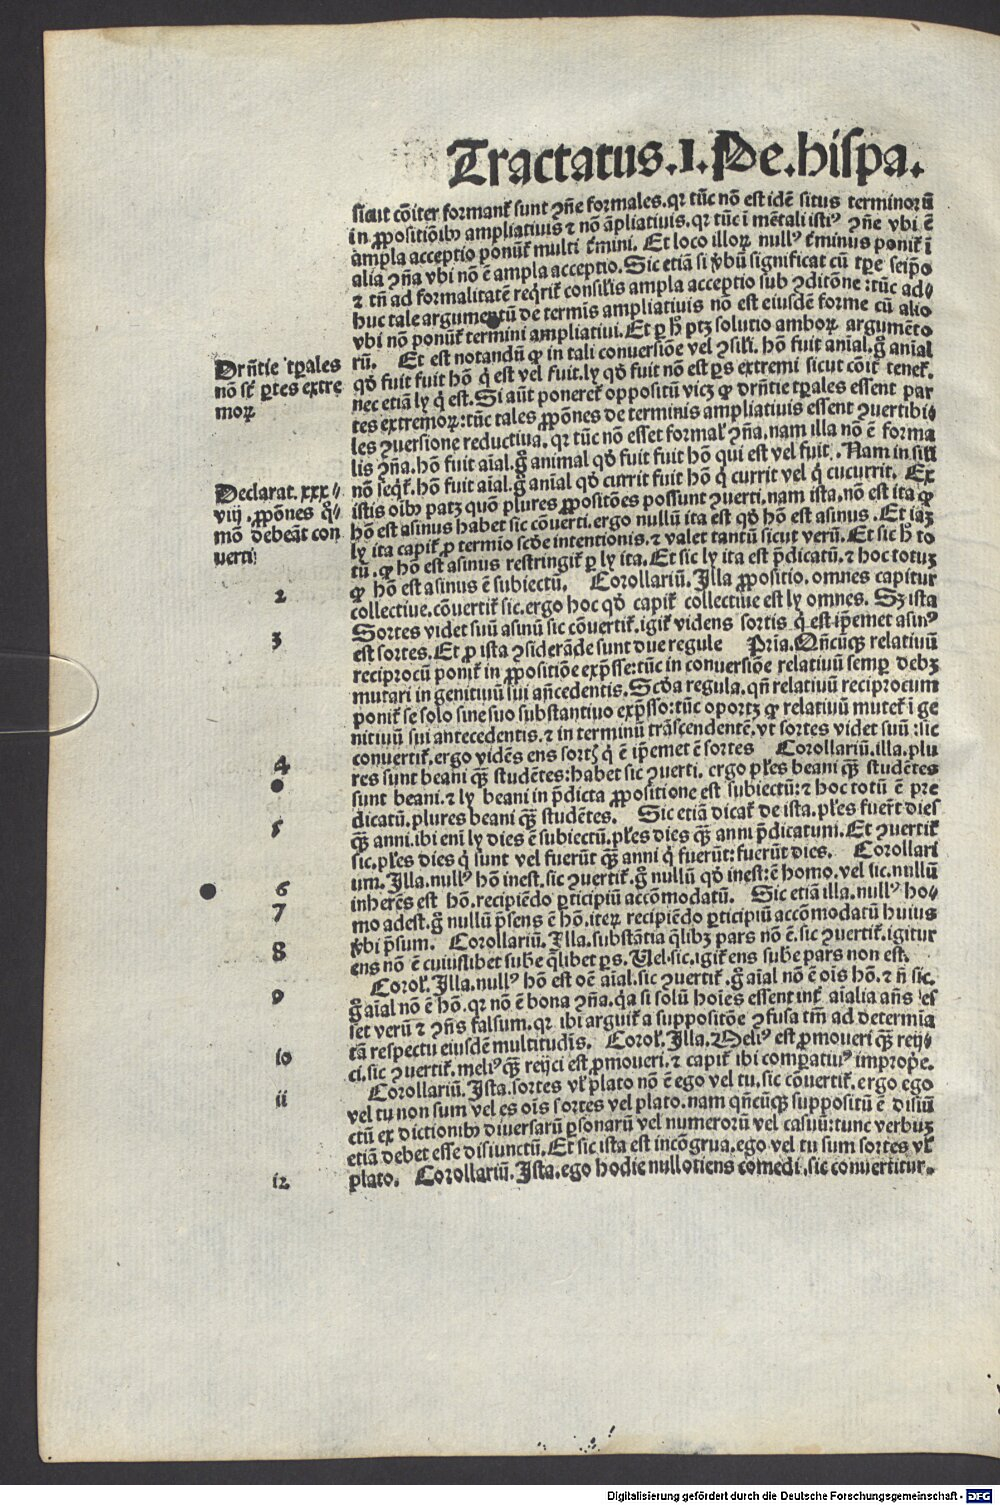 Tractatus.I.De.hispa.
sicut cõiter formant̃ sunt ꝯñe formales.qꝛ tũc nõ est idẽ situs terminoꝛũ
in ꝓpositiõibꝰ ampliatiuis ⁊ nõ ãpliatiuis.qꝛ tũc ĩ mẽtali istiꝰ ꝯñe vbi ẽ
ampla acceptio ponũt̃ multi t̃mini. Et loco illoꝝ nullꝰ t̃minus ponit̃ ĩ
alia ꝯña vbi nõ ẽ ampla acceptio.Sic etiã si v̉bũ significat cũ tꝑe seip̃o
⁊ tñ ad formalitatẽ reqrit̃ consil̃is ampla acceptio sub ꝯditõne:tũc ad⸗
huc tale argumentũ de termĩs ampliatiuis nõ est eiusdẽ forme cũ alio
vbi nõ ponũt̃ termini ampliatiui.Et ꝑ ħ ptꝫ solutio amboꝝ argumẽto
rũ. Et est notandũ ꝙ in tali conuersiõne vel ꝯsil̃i. hõ fuit aĩal.g̊ anĩal
qd̉ fuit fuit hõ q̉ est vel fuit.ly qd̉ fuit nõ est ꝑs extremi sicut cõit̃ tenet̃.
nec etiã ly q̉ est.Si aũt poneret̃ oppositũ vicꝫ ꝙ dr̃ñtie tꝑales essent par
tes extremoꝝ:tũc tales ꝓpõnes de terminis ampliatiuis essent ꝯuertibi⸗
les ꝯuersione reductiua.qꝛ tũc nõ esset formal̃ ꝯña.nam illa nõ ẽ forma
lis ꝯña.hõ fuit aĩal.g̊ animal qd̉ fuit fuit hõ qui est vel fuit. Nam in sil̃i
nõ seqt̃.hõ fuit aĩal.g̊ anĩal qd̉ currit fuit hõ q̉ currit vel q̉ cucurrit. Ex
istis oĩbꝰ patꝫ quõ plures ꝓpositões possunt ꝯuerti.nam ista.nõ est ita ꝙ
hõ est asinus habet sic cõuerti.ergo nullũ ita est qd̉ hõ est asinus.Et iaꝫ
ly ita capit̃ ꝓ termĩo scd̉e intentionis.⁊ valet tantũ sicut verũ.Et sic ħ to
tũ.ꝙ hõ est asinus restringit̃ ꝑ ly ita.Et sic ly ita est p̃dicatũ.⁊ hoc totuꝫ
ꝙ hõ est asinus ẽ subiectũ. Corollariũ.Illa ꝓpositio.omnes capitur
collectiue.cõuertit̃ sic.ergo hoc qd̉ capit̃ collectiue est ly omnes. Sꝫ ista
Sortes videt suũ asinũ sic cõuertit̃.igit̃ videns sortis q̉ est ip̃emet asinꝰ
est sortes.Et ꝓ ista ꝯsiderãde sunt due regule Pria.Qñcũqꝫ relatiuũ
reciprocũ ponit̃ in ꝓpositiõe exp̃sse:tũc in conuersiõne relatiuũ semꝑ debꝫ
mutari in genitiuũ sui añcedentis.Scd̉a regula.qñ relatiuũ reciprocum
ponit̃ se solo sine suo substantiuo exp̃sso:tũc oportꝫ ꝙ relatiuũ mutet̃ ĩ ge
nitiuũ sui antecedentis.⁊ in terminũ trãscendentẽ.vt sortes videt suũ:sic
conuertit̃.ergo vidẽs ens sort̃ q̉ ẽ ip̃emet ẽ sortes Corollariũ.illa.plu
res sunt beani qꝫ̃ studẽtes:habet sic ꝯuerti. ergo pl̃es beani qꝫ̃ studẽtes
sunt beani.⁊ ly beani in p̃dicta ꝓpositione est subiectũ:⁊ hoc totũ ẽ pre
dicatũ.plures beani qꝫ̃ studẽtes. Sic etiã dicat̃ de ista.pl̃es fuer̃t dies
qꝫ̃ anni.ibi enĩ ly dies ẽ subiectũ.pl̃es dies qꝫ̃ anni p̃dicatum.Et ꝯuertit̃
sic.pl̃es dies q̉ sunt vel fuerũt qꝫ̃ anni q̉ fuerũt:fuerũt dies. Corollari
um.Illa.nullꝰ hõ inest.sic ꝯuertit̃.g̊ nullũ qd̉ inest:ẽ homo.vel sic.nullũ
inherẽs est hõ.recipiẽdo ꝑticipiũ accõmodatũ. Sic etiã illa.nullꝰ ho⸗
mo adest.g̊ nullũ p̃sens ẽ hõ.iteꝝ recipiẽdo ꝑticipiũ accõmodatũ huius
v̉bi p̃sum. Corollariũ.Illa.substãtia q̃libꝫ pars nõ ẽ.sic ꝯuertit̃.igitur
ens nõ ẽ cuiuslibet sub̃e q̃libet ꝑs.Uel.sic.igit̃ ens sub̃e pars non est.
Corol̃.Illa.nullꝰ hõ est oẽ aĩal.sic ꝯuertit̃.g̊ aĩal nõ ẽ oĩs hõ.⁊ ñ sic.
g̊ aĩal nõ ẽ hõ.qꝛ nõ ẽ bona ꝯña.q̉a si solũ hoĩes essent int̃ aĩalia añs es
set verũ ⁊ ꝯñs falsum.qꝛ ibi arguit̃ a suppositõe ꝯfusa tm̃ ad determĩa
tã respectu eiusdẽ multitudĩs. Corol̃.Illa.Meliꝰ est ꝓmoueri qꝫ̃ reij⸗
ci.sic ꝯuertit̃.meliꝰ qꝫ̃ reijci est ꝓmoueri.⁊ capit̃ ibi comꝑatiuꝰ improp̃e.
Corollariũ.Ista.sortes vl̃ plato nõ ẽ ego vel tu.sic cõuertit̃.ergo ego
vel tu non sum vel es oĩs sortes vel plato.nam qñcũqꝫ suppositũ ẽ disiũ
ctũ ex dictionibꝰ diuersarũ ꝑsonarũ vel numerorũ vel casuũ:tunc verbuꝫ
etiã debet esse disiunctũ.Et sic ista est incõgrua.ego vel tu sum sortes vl̃
plato. Corollariũ.Ista.ego hodie nullotiens comedi.sic conuertitur.
Dr̃ñtie tꝑales
nõ sũt ꝑtes extre
moꝝ
Declarat.xxx⸗
viij.ꝓpõnes q̉⸗
mõ debeãt con
uerti
2
3
4
5
6
7
8
9
10
ii
12
Digitalisierung gefördert durch die Deutsche Forschungsgemeinschaft - DFG